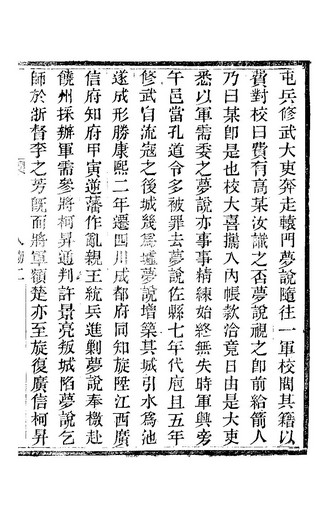 屯兵修武大吏奔走轅門夢說隨往一軍校閱其籍以
費對校曰費有高某汝識之否夢說視之卽前給箭人
乃曰某卽是也校大喜攜入內帳款洽竟日由是大吏
悉以軍需委之夢說亦事事精練始終無失時軍興旁
午邑當孔道令多被罪去夢說佐縣七年代庖且五年
修武自流寇之後城幾為墟夢說增築其城引水為池
遂成形勝康熙二年遷四川成都府同知旋陞江西廣
信府知府甲寅逆藩作亂親王統兵進剿夢說奉檄赴
饒州採辦軍需參將柯昇通判許景亮叛城陷夢說乞
師於浙督李之芳旣而將軍額楚亦至旋復廣信柯昇
人物二